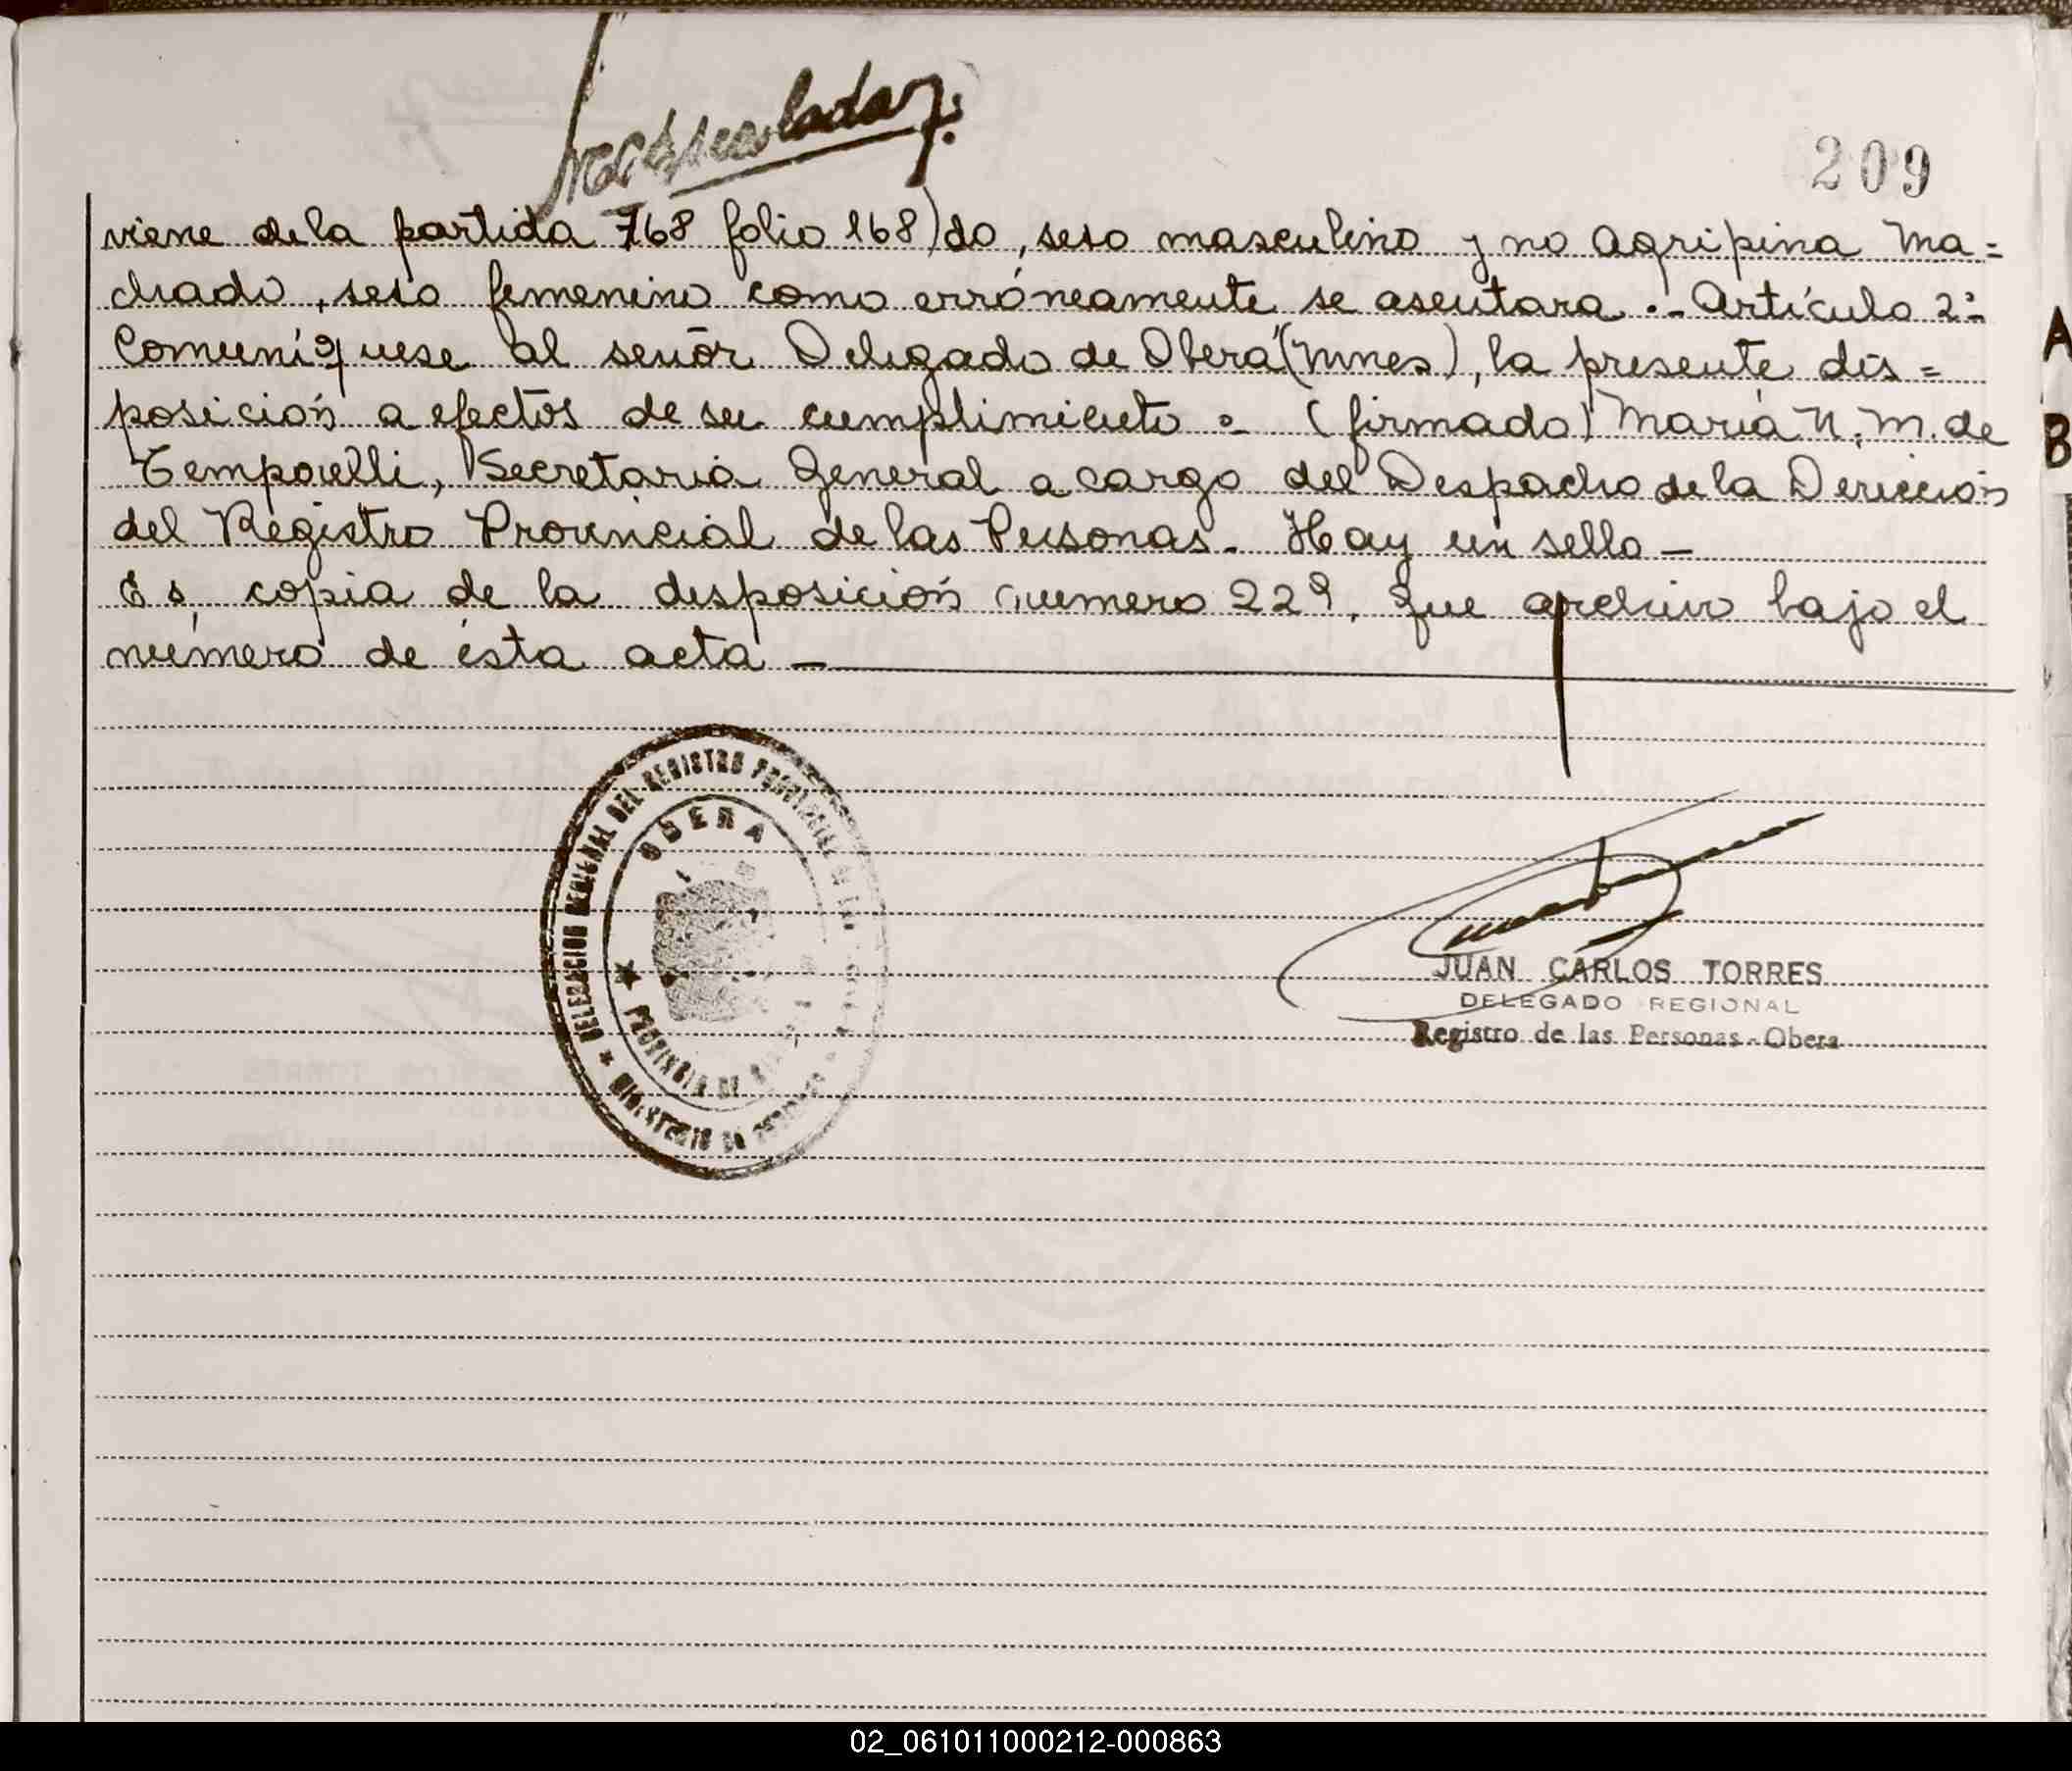 209
viene de la partida 768 folio 168) do, sexo masculino y no Agripina Ma=
chado, sexo femenino como erróneamente se asentara.- Artículo 2º
Comuníquese al señor Delegado de Oberá (Mnes), la presente dis=
posición a efectos de su cumplimiento.- (firmado) María N. M. de
Temporelli, Secretaria General a cargo del Despacho de la Dirección
del Registro Provincial de las Personas - Hay un sello -
Es copia de la disposición número 229, que archivo bajo el
número de ésta acta -
DELEGACION REGIONAL DEL REGISTRO PROVINCIAL DE LAS
OBERA
PROVINCIA DE
MINISTERIO DE GOBIERNO
JUAN CARLOS TORRES
DELEGADO REGIONAL
Registro de las Personas - Obera
A
B
02_061011000212-000863